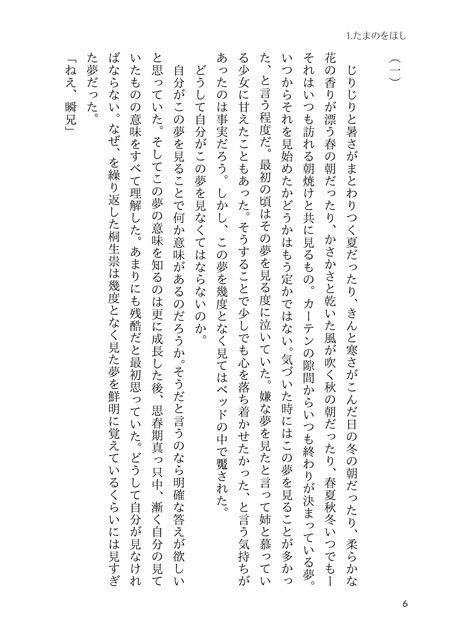 1.たまのをほし
（一）
　じりじりと暑さがまとわりつく夏だったり、きんと寒さがこんだ日の冬の朝だったり、柔らかな
花の香りが漂う春の朝だったり、かさかさと乾いた風が吹く秋の朝だったり、春夏秋冬いつでも―
それはいつも訪れる朝焼けと共に見るもの。カーテンの隙間からいつも終わりが決まっている夢。
いつからそれを見始めたかどうかはもう定かではない。気づいた時にはこの夢を見ることが多かっ
た、と言う程度だ。最初の頃はその夢を見る度に泣いていた。嫌な夢を見たと言って姉と慕ってい
る少女に甘えたこともあった。そうすることで少しでも心を落ち着かせたかった、と言う気持ちが
あったのは事実だろう。しかし、この夢を幾度となく見てはベッドの中で魘された。
　どうして自分がこの夢を見なくてはならないのか。
　自分がこの夢を見ることで何か意味があるのだろうか。そうだと言うのなら明確な答えが欲しい
と思っていた。そしてこの夢の意味を知るのは更に成長した後、思春期真っ只中、漸く自分の見て
いたものの意味をすべて理解した。あまりにも残酷だと最初思っていた。どうして自分が見なけれ
ばならない。なぜ、を繰り返した桐生崇は幾度となく見た夢を鮮明に覚えているくらいには見すぎ
た夢だった。
「ねえ、瞬兄」
6